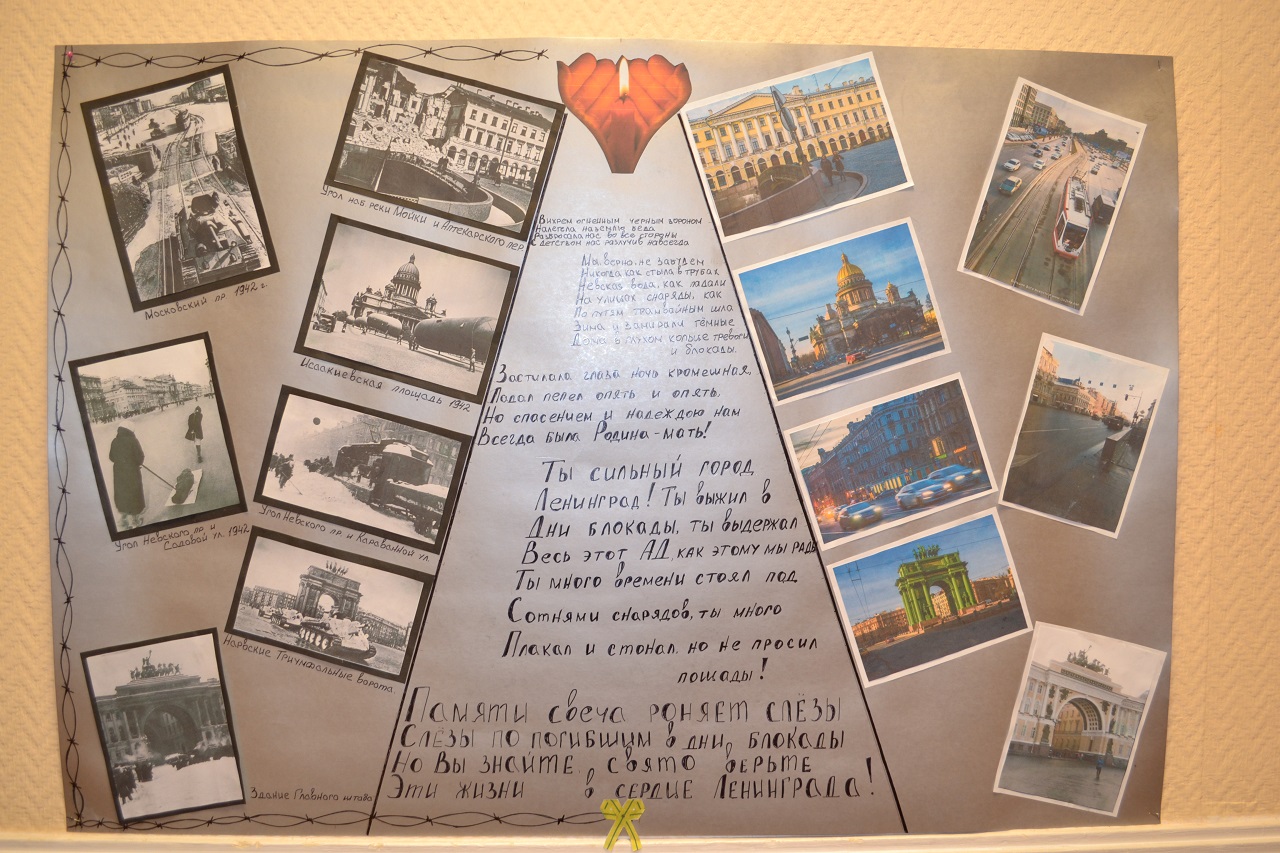 Угол наб реки Мойки и Аптекарского пер.
Московский пр 1942 г.
Исаакиевская площадь 1942
Угол Невского пр. и
Садовой ул. 1942
Угол Невского пр. и Караванной ул.
Нарвские Триумфальные ворота.
Здание Главного штаба
Вихрем огненным черным вороном
Налетела на землю беда
Разбросала нас во все стороны
С детством нас разлучив навсегда
Мы, верно, не забудем
Никогда, как стыла в трубах
Невская вода, как падали
На улицах снаряды, как
По путям трамвайным шла
Зима и замирали тёмные
Дома в глухом кольце тревоги
и блокады.
Застилала глаза ночь кромешная,
Падал пепел опять и опять,
Но спасением и надеждою нам
Всегда была Родина-мать!
Ты сильный город,
Ленинград! Ты выжил в
Дни блокады, ты выдержал
Весь этот АД, как этому мы рады
Ты много времени стоял под
Сотнями снарядов, ты много
Плакал и стонал, но не просил
пощады!
Памяти свеча роняет слёзы
Слёзы по погибшим в дни блокады
Но Вы знайте, свято верьте
Эти жизни в сердце Ленинграда!